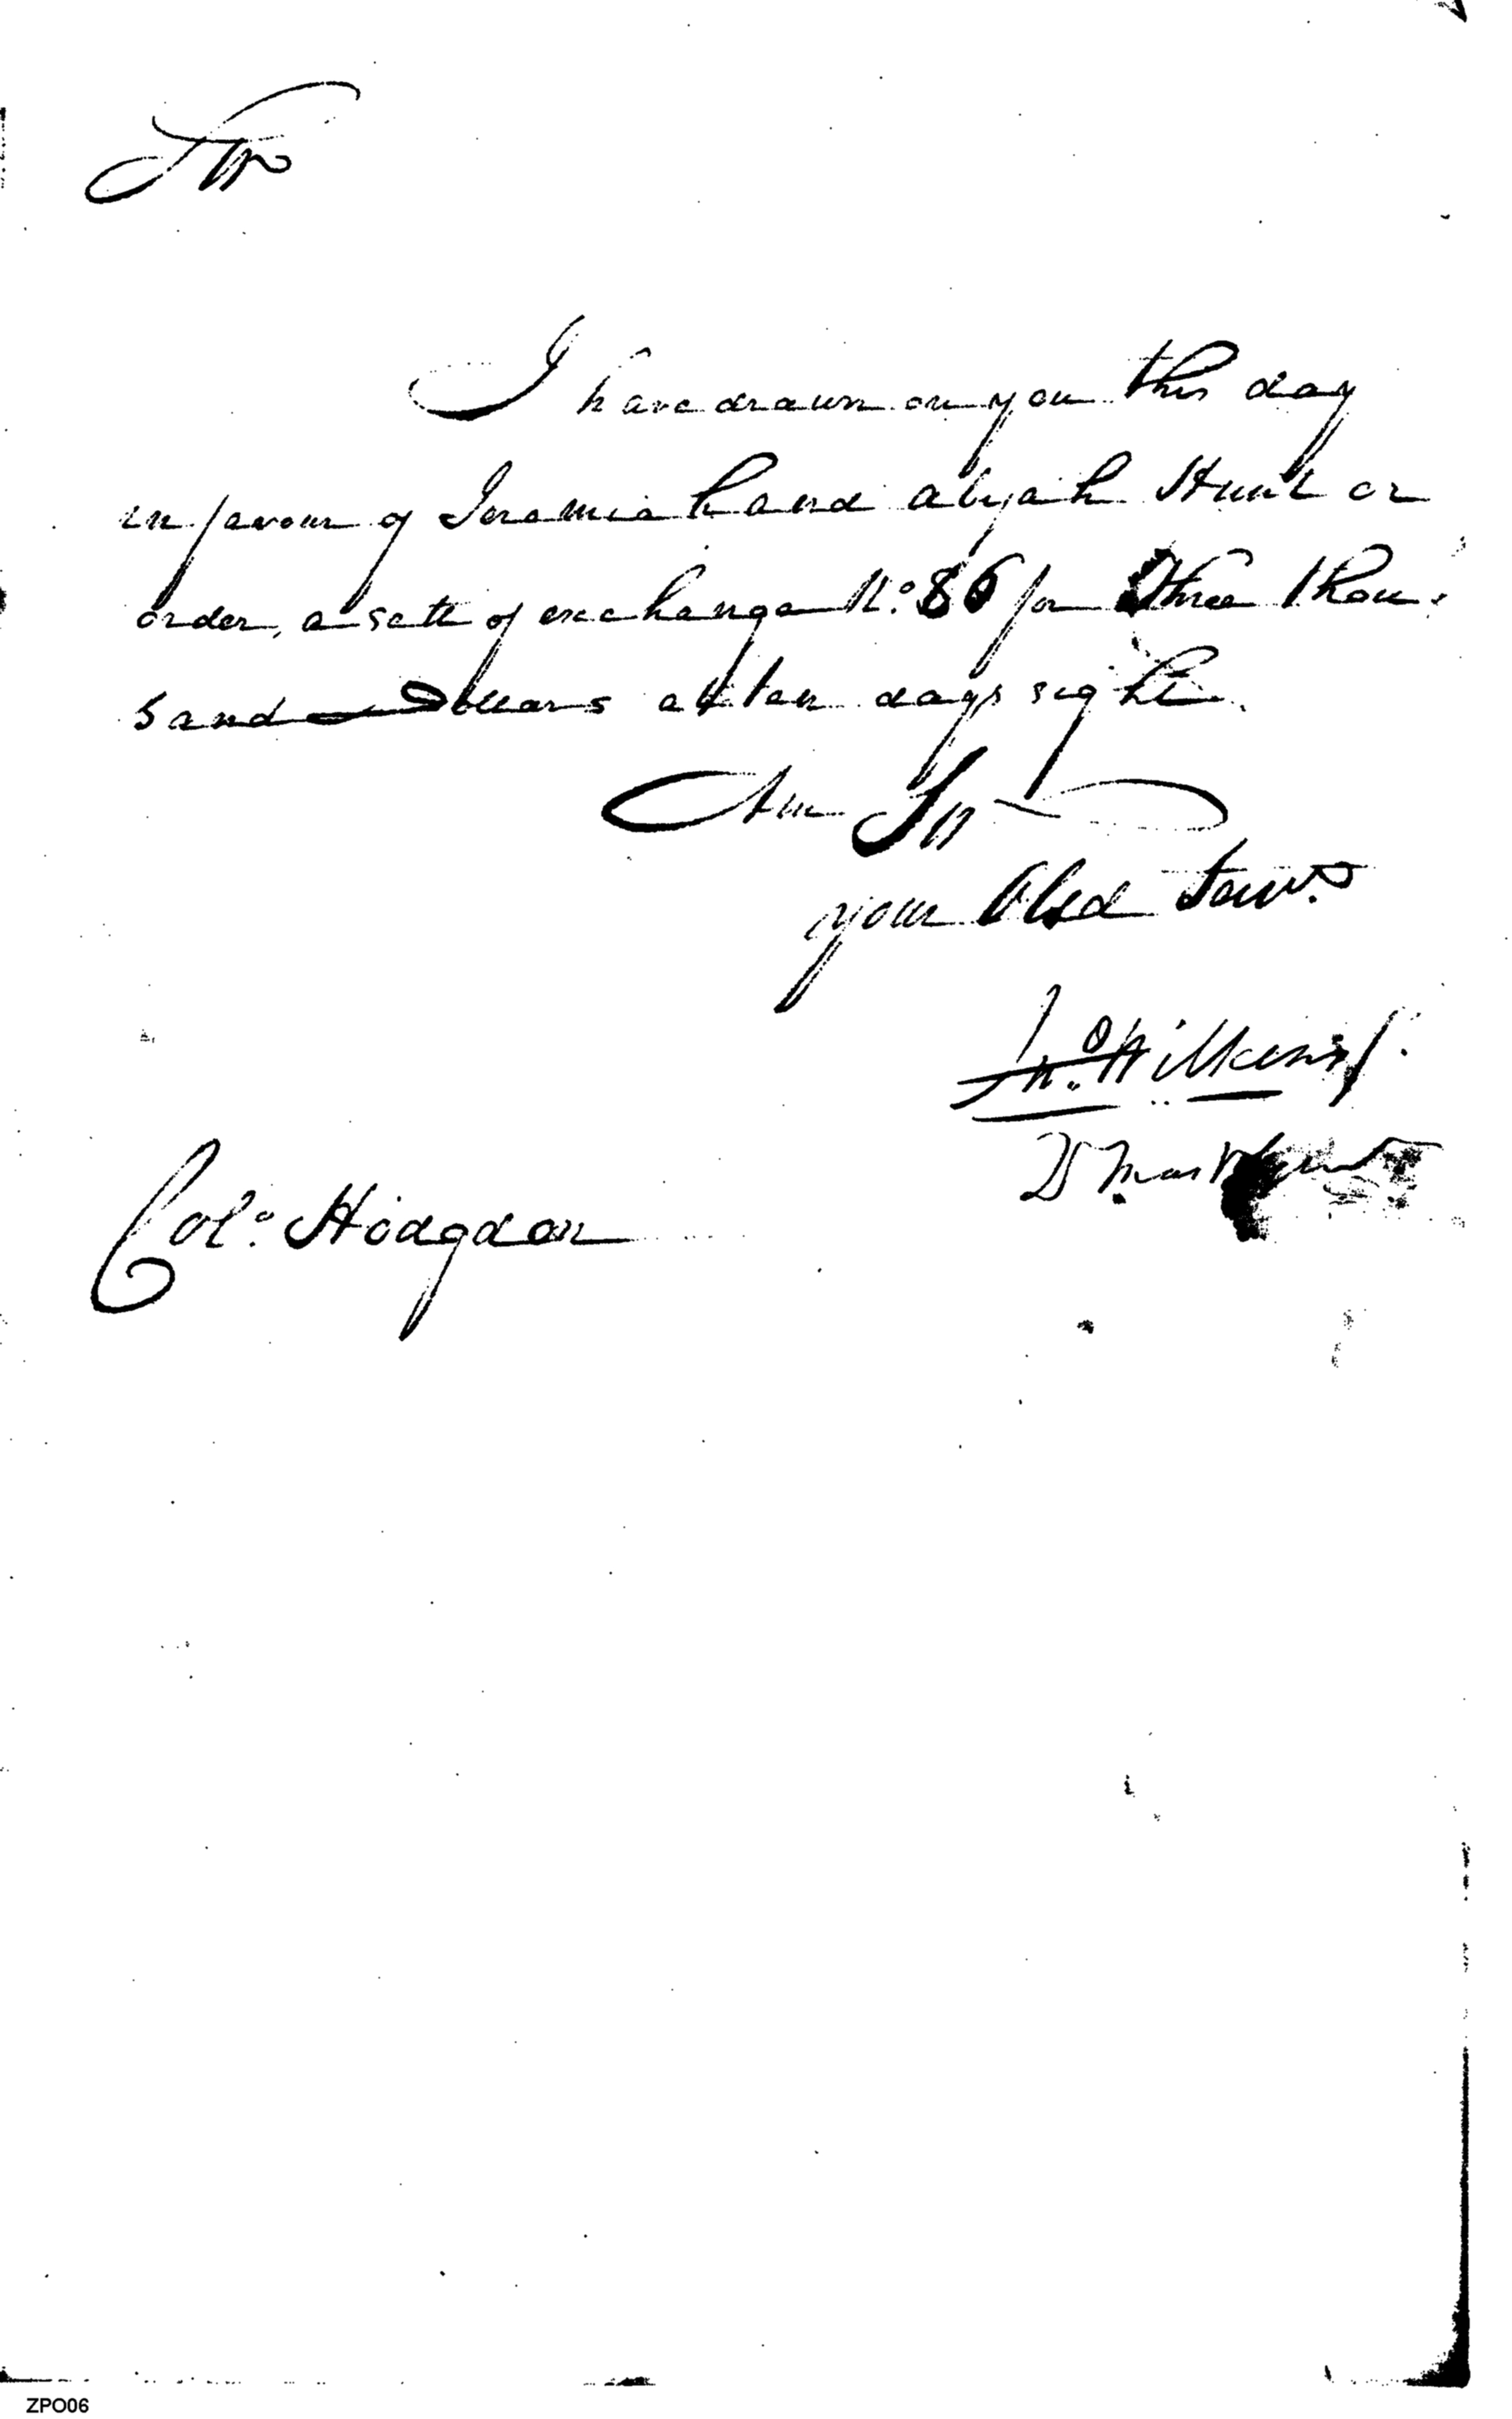 Sir
I have drawn on you this day
in favour of Jeremiah and abijah Hunt or
order, a sett of exchange N.o 86 for Three thou-
sand Dollars at ten days sight.
Am Sir
your Obed Serv.t
Jn.o Wilkins Jr.
D Mas
Col.o Hodgdon
ZPO06